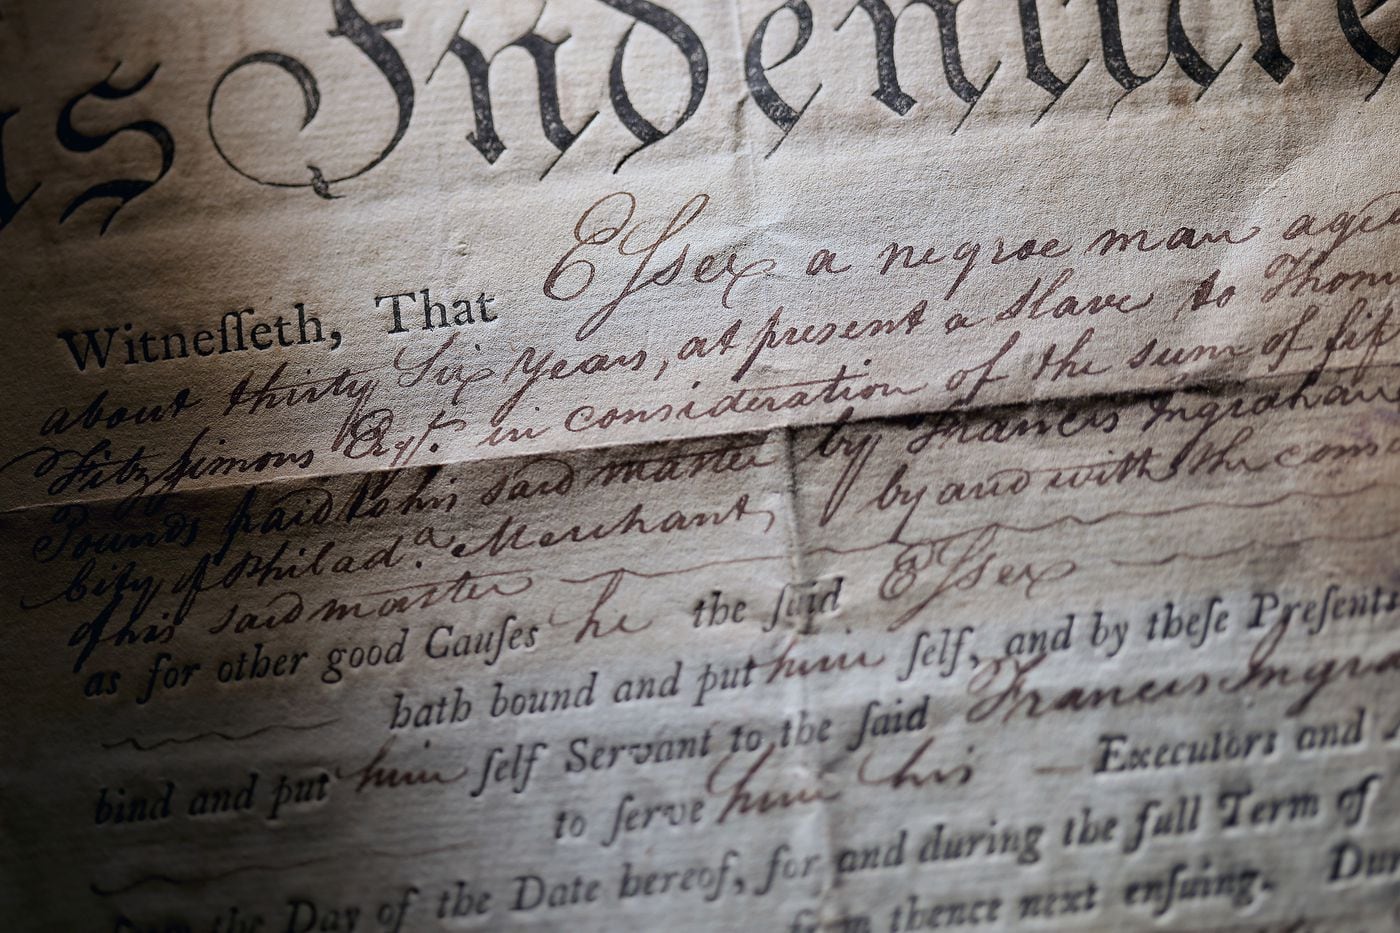 is Indenture
Witneſſeth, That Eſsex a negroe man aged
about thirty Six Years, at present a slave to Thom
Fitzsimons Esqr. in consideration of the sum of fif
Pounds paid to his said master by Francis Ingraham
City of Philada. Merchant, by and with the cons
of his said master
as for other good Cauſes he the ſaid Eſsex
hath bound and put him ſelf, and by theſe Preſents
bind and put him ſelf Servant to the ſaid Francis Ingra
to ſerve him his Executors and
the Day of the Date hereof, for and during the full Term of
from thence next enſuing. Du